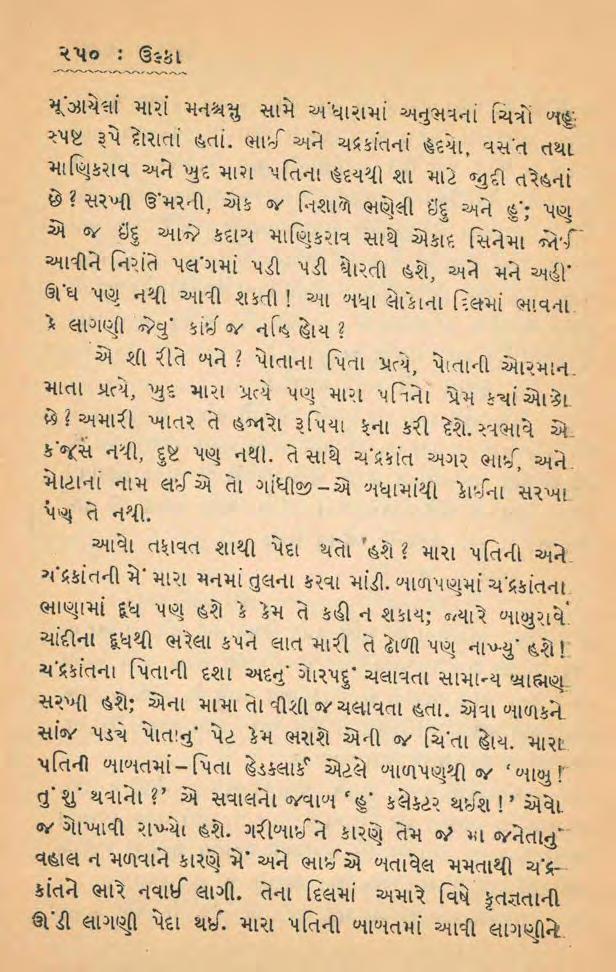 ૨૫૦ : ઉલ્કા
મૂંઝાયેલાં મારાં મનશ્ચક્ષુ સામે અંધારામાં અનુભવનાં ચિત્રો બહુ
સ્પષ્ટ રૂપે દોરાતાં હતાં. ભાઈ અને ચદ્રકાંતનાં હૃદયો, વસંત તથા
માણિકરાવ અને ખુદ મારા પતિના હૃદયથી શા માટે જુદી તરેહનાં
છે? સરખી ઉંમરની, એક જ નિશાળે ભણેલી ઇંદુ અને હું; પણ
એ જ ઇંદુ આજે કદાચ માણિકરાવ સાથે એકાદ સિનેમા જોઈ
આવીને નિરાંતે પલંગમાં પડી પડી ઘોરતી હશે, અને મને અહીં
ઊંઘ પણ નથી આવી શકતી! આ બધા લોકોના દિલમાં ભાવના
કે લાગણી જેવું કાંઈ જ નહિ હોય?
એ શી રીતે બને? પોતાના પિતા પ્રત્યે, પોતાની ઓરમાન
માતા પ્રત્યે, ખુદ મારા પ્રત્યે પણ મારા પતિનો પ્રેમ ક્યાં ઓછો
છે? અમારી ખાતર તે હજારો રૂપિયા ફના કરી દેશે. સ્વભાવે એ
કંજુસ નથી, દુષ્ટ પણ નથી. તે સાથે ચંદ્રકાંત અગર ભાઈ, અને
મોટાનાં નામ લઈએ તો ગાંધીજી – એ બધામાંથી કોઈના સરખા
પણ તે નથી.
આવો તફાવત શાથી પેદા થતો હશે? મારા પતિની અને
ચંદ્રકાંતની મેં મારા મનમાં તુલના કરવા માંડી. બાળપણમાં ચંદ્રકાંતના
ભાણામાં દૂધ પણ હશે કે કેમ તે કહી ન શકાય; જ્યારે બાબુરાવે
ચાંદીના દૂધથી ભરેલા કપને લાત મારી તે ઢોળી પણ નાખ્યું હશે!
ચંદ્રકાંતના પિતાની દશા અદનું ગોરપદું ચલાવતા સામાન્ય બ્રાહ્મણ
સરખી હશે; એના મામા તો વીશી જ ચલાવતા હતા. એવા બાળકને
સાંજ પડ્યે પોતાનું પેટ કેમ ભરાશે એની જ ચિંતા હોય. મારા
પતિની બાબતમાં – પિતા હેડક્લાર્ક એટલે બાળપણથી જ ‘બાબુ!
તું શું થવાનો?’ એ સવાલનો જવાબ ‘હું કલેક્ટર થઈશ!’ એવો
જ ગોખાવી રાખ્યો હશે. ગરીબાઈને કારણે તેમ જ મા જનેતાનું
વહાલ ન મળવાને કારણે મેં અને ભાઈએ બતાવેલ મમતાથી ચંદ્ર-
કાંતને ભારે નવાઈ લાગી. તેના દિલમાં અમારે વિષે કૃતજ્ઞતાની
ઊંડી લાગણી પેદા થઈ. મારા પતિની બાબતમાં આવી લાગણીને